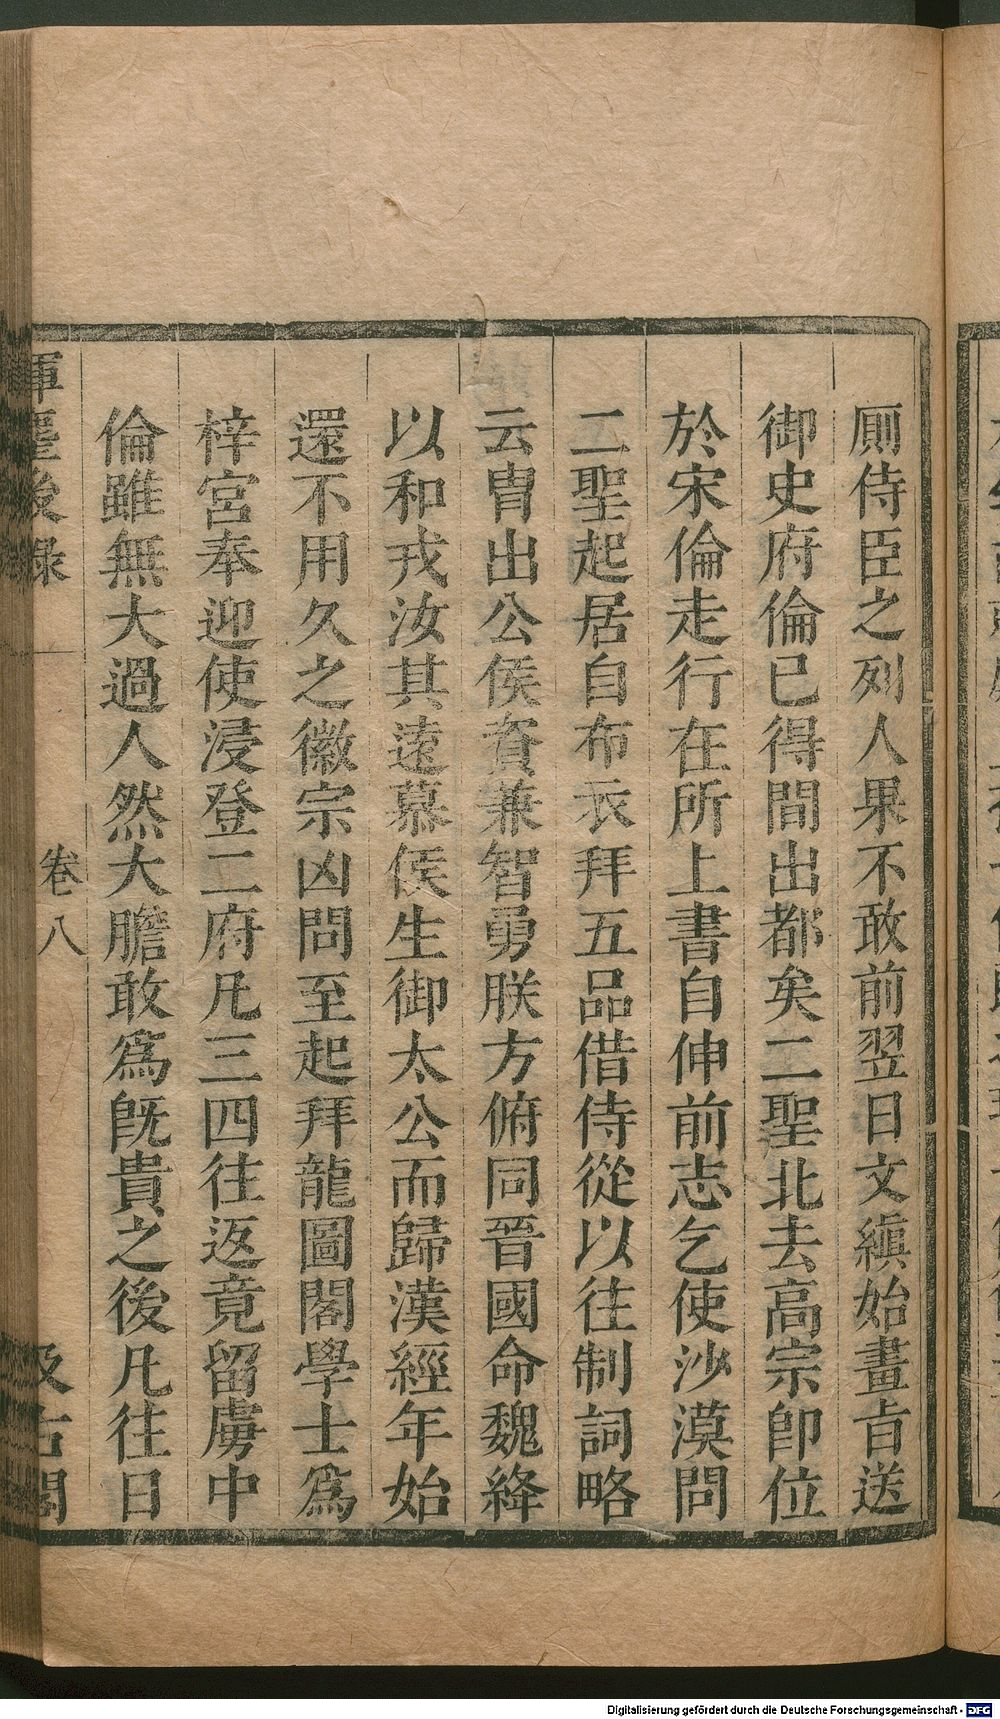 厠侍臣之列人果不敢前翌日文縝始畫㫖送
御史府倫已得間出都矣二聖北去高宗卽位
於宋倫走行在所上書自伸前志乞使沙漠問
二聖起居自布衣拜五品借侍從以往制詞略
云胄出公侯資兼智勇朕方俯同晉國命魏絳
以和戎汝其遠慕侯生御太公而歸漢經年始
還不用久之徽宗凶問至起拜龍圖閣學士爲
梓宮奉迎使浸登二府凡三四往返竟留虜中
倫雖無大過人然大膽敢爲旣貴之後凡往日
揮麈後錄
卷八
汲古閣
Digitalisierung gefördert durch die Deutsche Forschungsgemeinschaft - DFG